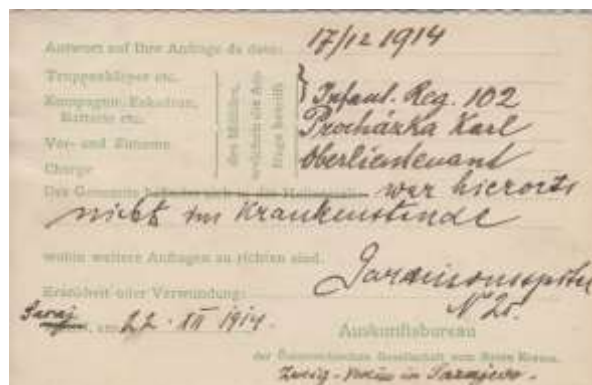 Antwort auf Ihre Anfrage de dato: 17/12 1914
Truppenkörper etc.
Kompagnie, Eskadron,
Batterie etc.
Vor- und Zuname
Charge
des Militärs,
welchen die An-
frage betrifft
} Infant. Reg. 102
Procházka Karl
Oberlieutenant
Der Genannte befindet sich in der war hierorts
nicht im Krankenstande
wohin weitere Anfragen zu richten sind.
Garnisonsspital
Krankheit oder Verwundung:
Nº 25.
Saraj am 22. XII 1914.
Auskunftsbureau
der Österreichischen Gesellschaft vom Roten Kreuze.
Zweig-Verein in Sarajevo.